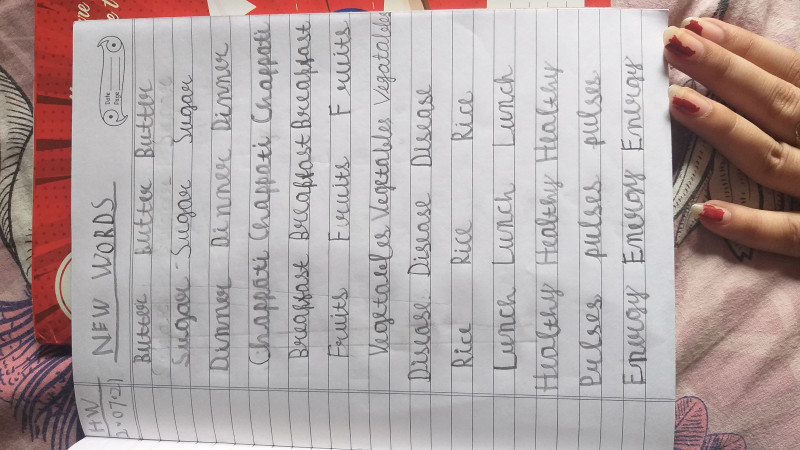 HW
Date
Page
NEW WORDS
Butter Butter Butter
Sugar Sugar Sugar
Dinner Dinner Dinner
Chappati Chappati Chappati
Breakfast Breakfast Breakfast
Fruits Fruits Fruits
Vegetables Vegetables Vegatables
Disease Disease Disease
Rice Rice Rice
Lunch Lunch Lunch
Healthy Healthy Healthy
Pulses pulses pulses
Energy Energy Energy